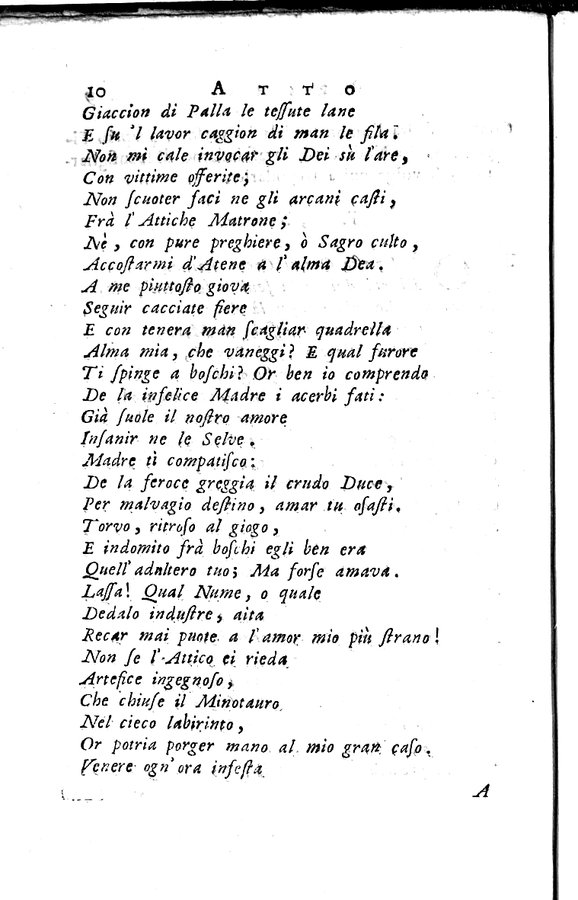 10 ATTO
Giaccion di Palla le teſſute lane
E ſu 'l lavor caggion di man le fila.
Non mi cale invocar gli Dei sù l'are,
Con vittime offerite;
Non ſcuoter faci ne gli arcani caſti,
Frà l'Attiche Matrone;
Nè, con pure preghiere, ò Sagro culto,
Accoſtarmi d'Atene a l'alma Dea.
A me piuttoſto giova
Seguir cacciate fiere
E con tenera man ſcagliar quadrella
Alma mia, che vaneggi? E qual furore
Ti ſpinge a boſchi? Or ben io comprendo
De la infelice Madre i acerbi fati:
Già ſuole il noſtro amore
Inſanir ne le Selve.
Madre ti compatiſco:
De la feroce greggia il crudo Duce,
Per malvagio deſtino, amar tu oſaſti.
Torvo, ritroſo al giogo,
E indomito frà boſchi egli ben era
Quell'adultero tuo; Ma forſe amava.
Laſſa! Qual Nume, o quale
Dedalo induſtre, aita
Recar mai puote a l'amor mio più ſtrano!
Non ſe l'Attico ei rieda
Artefice ingegnoſo,
Che chiuſe il Minotauro
Nel cieco labirinto,
Or potria porger mano al mio gran caſo.
Venere ogn'ora infeſta
A